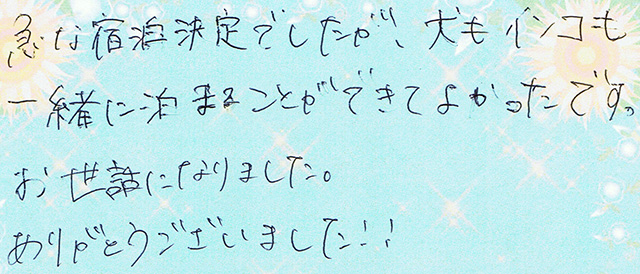 急な宿泊決定でしたが、犬もインコも
一緒に泊まることができてよかったです。
お世話になりました。
ありがとうございました!!